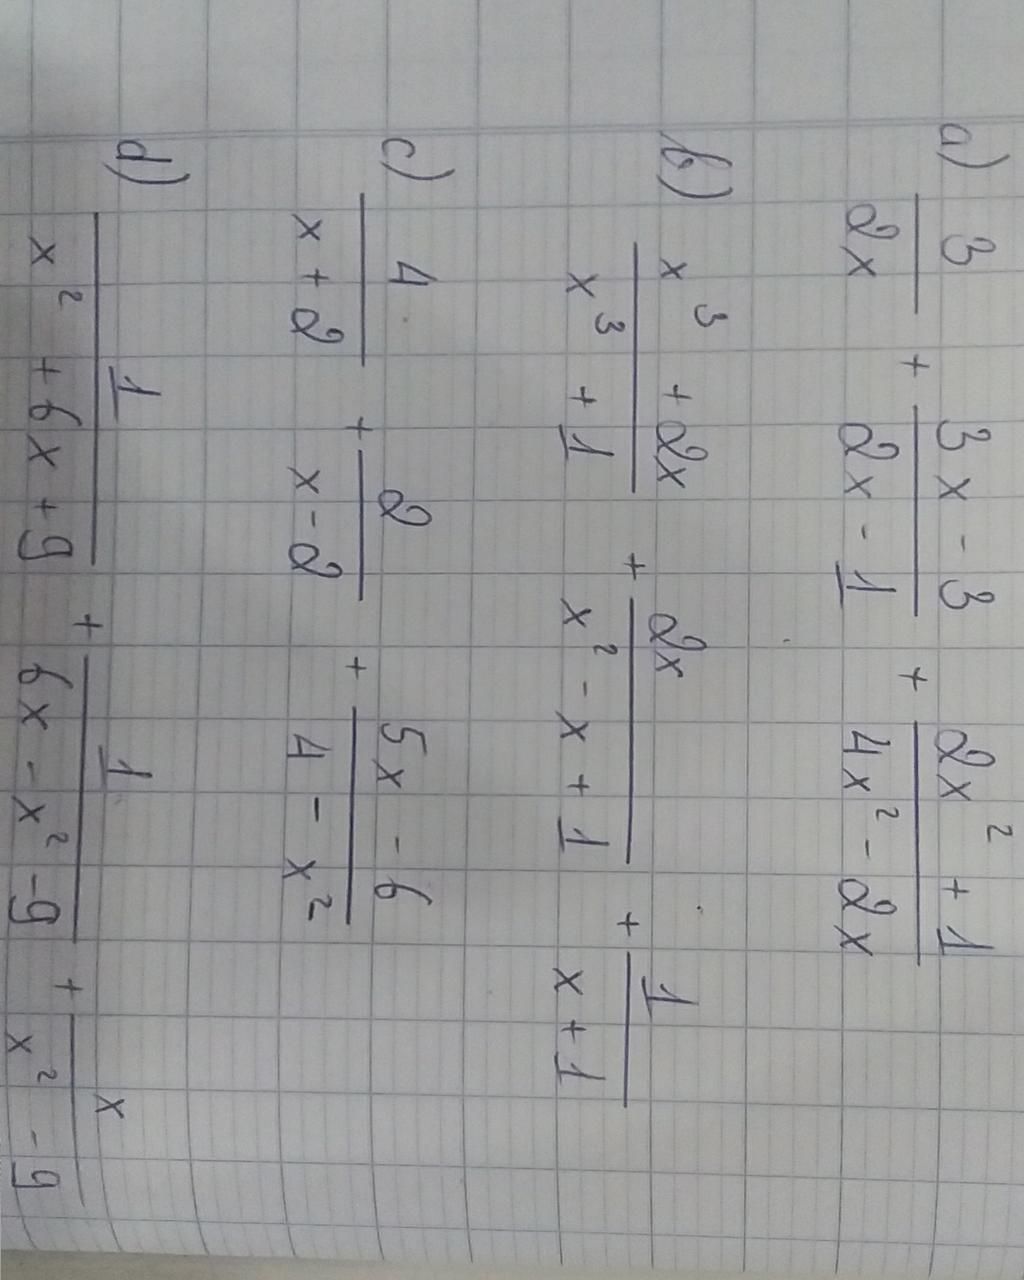 a) 3/2x + (3x - 3)/(2x - 1) + (2x² + 1)/(4x² - 2x)
b) (x³ + 2x)/(x³ + 1) + 2x/(x² - x + 1) + 1/(x + 1)
c) 4/(x + 2) + 2/(x - 2) + (5x - 6)/(4 - x²)
d) 1/(x² + 6x + 9) + 1/(6x - x² - 9) + x/(x² - 9)